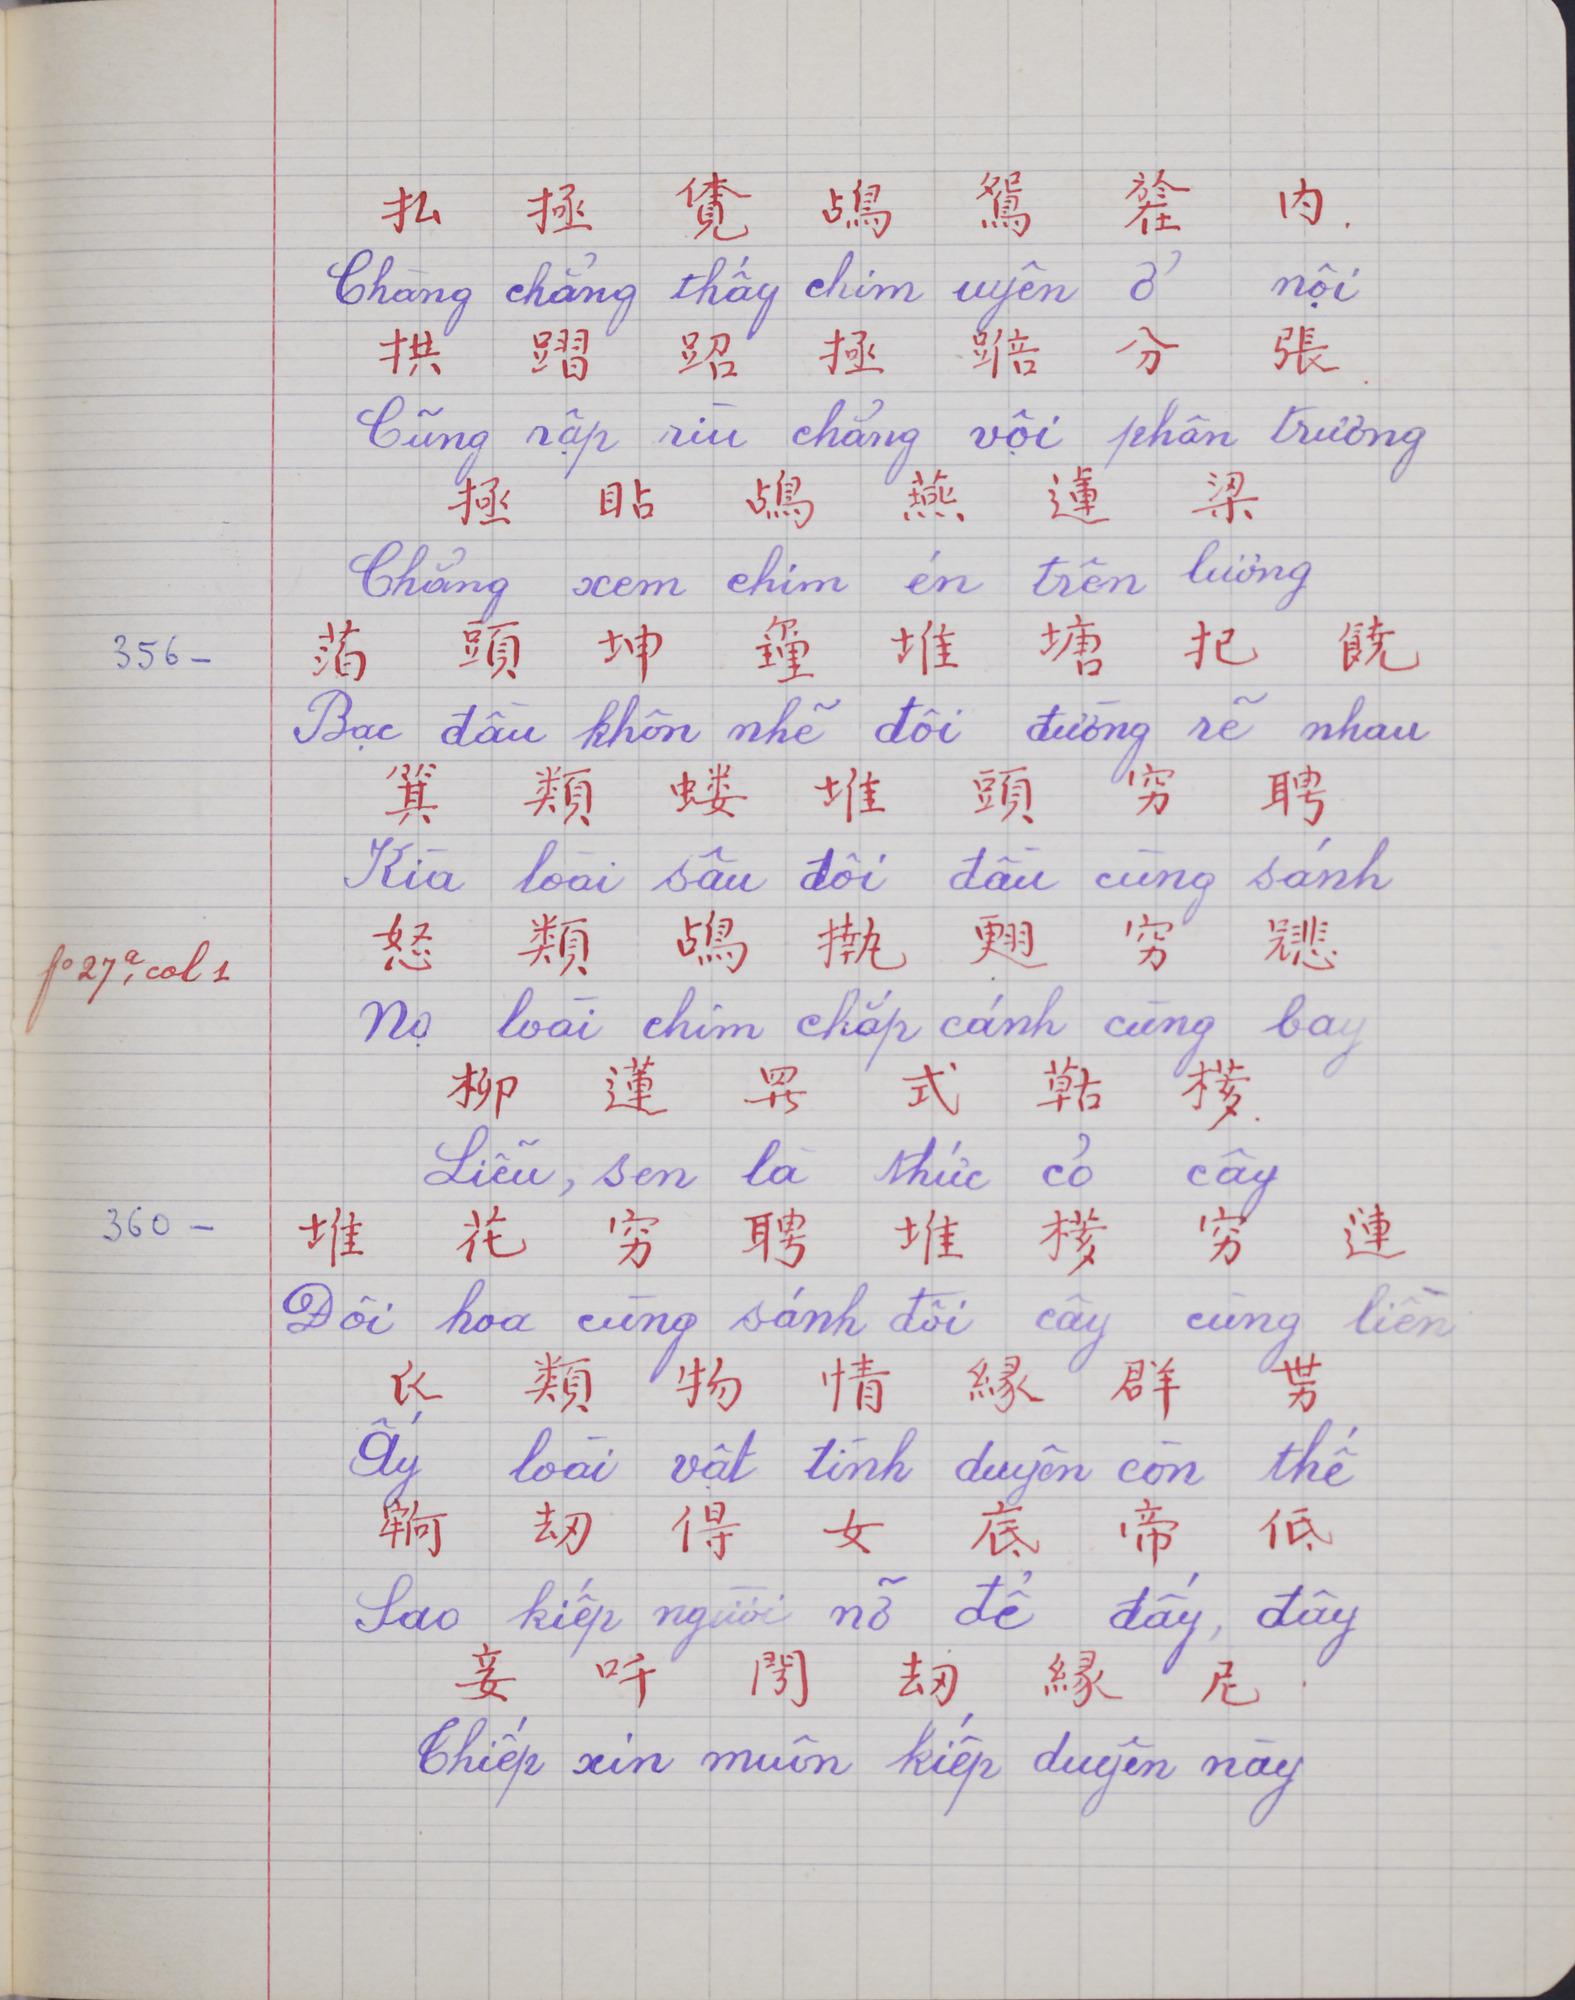 払 拯 覔 鴣 鴛 於 内.
Chàng chẳng thấy chim uyên ở nội
拱 蹓 跆 拯 踣 分 張
Cũng rập rìu chẳng vội phân trương
拯 貼 鴣 燕 蓮 梁
Chẳng xem chim én trên lương
356 — 萡 頭 坤 堆 塘 扡 饒
Bạc đầu khôn nhẽ đôi đường rẽ nhau
箕 類 蝼 堆 頭 穷 聘
Kìa loài sâu đôi đầu cùng sánh
fo 27a, col 1
怒 類 鴣 執 翅 穷
Nọ loài chim chắp cánh cùng bay
柳 蓮 𱺵 式 𦹵 核.
Liễu, sen là thức cỏ cây
360 — 堆 花 穷 聘 堆 核 穷 連
Đôi hoa cùng sánh đôi cây cùng liền
氏 類 物 情 縁 群 势
Ấy loài vật tình duyên còn thế
劫 得 女 底 帝 低
Sao kiếp người nỡ để đấy, đây
妾 吀 閍 劫 縁 尼.
Thiếp xin muôn kiếp duyên này